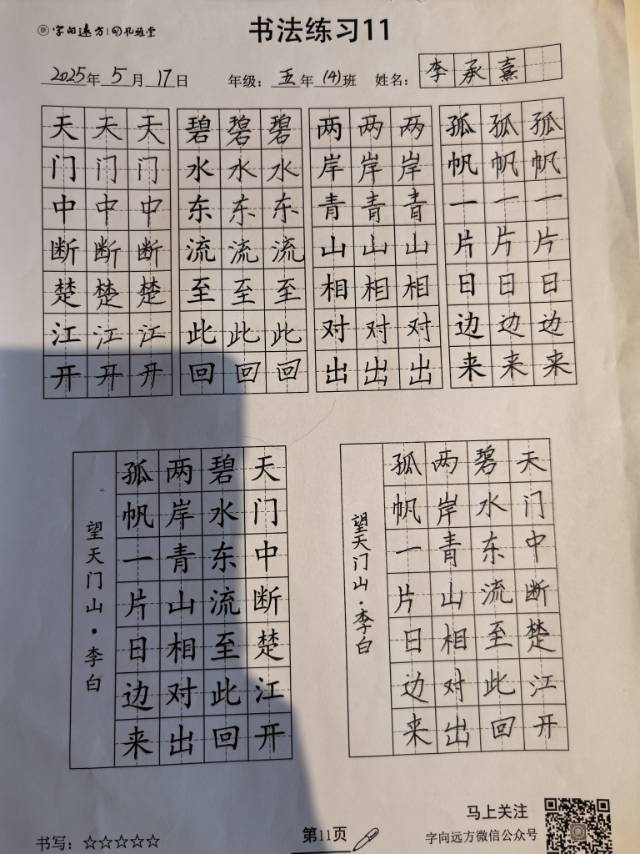 字向远方 孔雀堂
书法练习11
2025年 5 月 17 日 年级: 五 年 (4) 班 姓名: 李承熹
天天天 碧碧碧 两两两 孤孤孤
门门门 水水水 岸岸岸 帆帆帆
中中中 东东东 青青青 一一一
断断断 流流流 山山山 片片片
楚楚楚 至至至 相相相 日日日
江江江 此此此 对对对 边边边
开开开 回回回 出出出 来来来
天门中断楚江开
碧水东流至此回
两岸青山相对出
孤帆一片日边来
望天门山·李白
天门中断楚江开
碧水东流至此回
两岸青山相对出
孤帆一片日边来
望天门山·李白
书写: ☆☆☆☆☆
第11页
马上关注
字向远方微信公众号